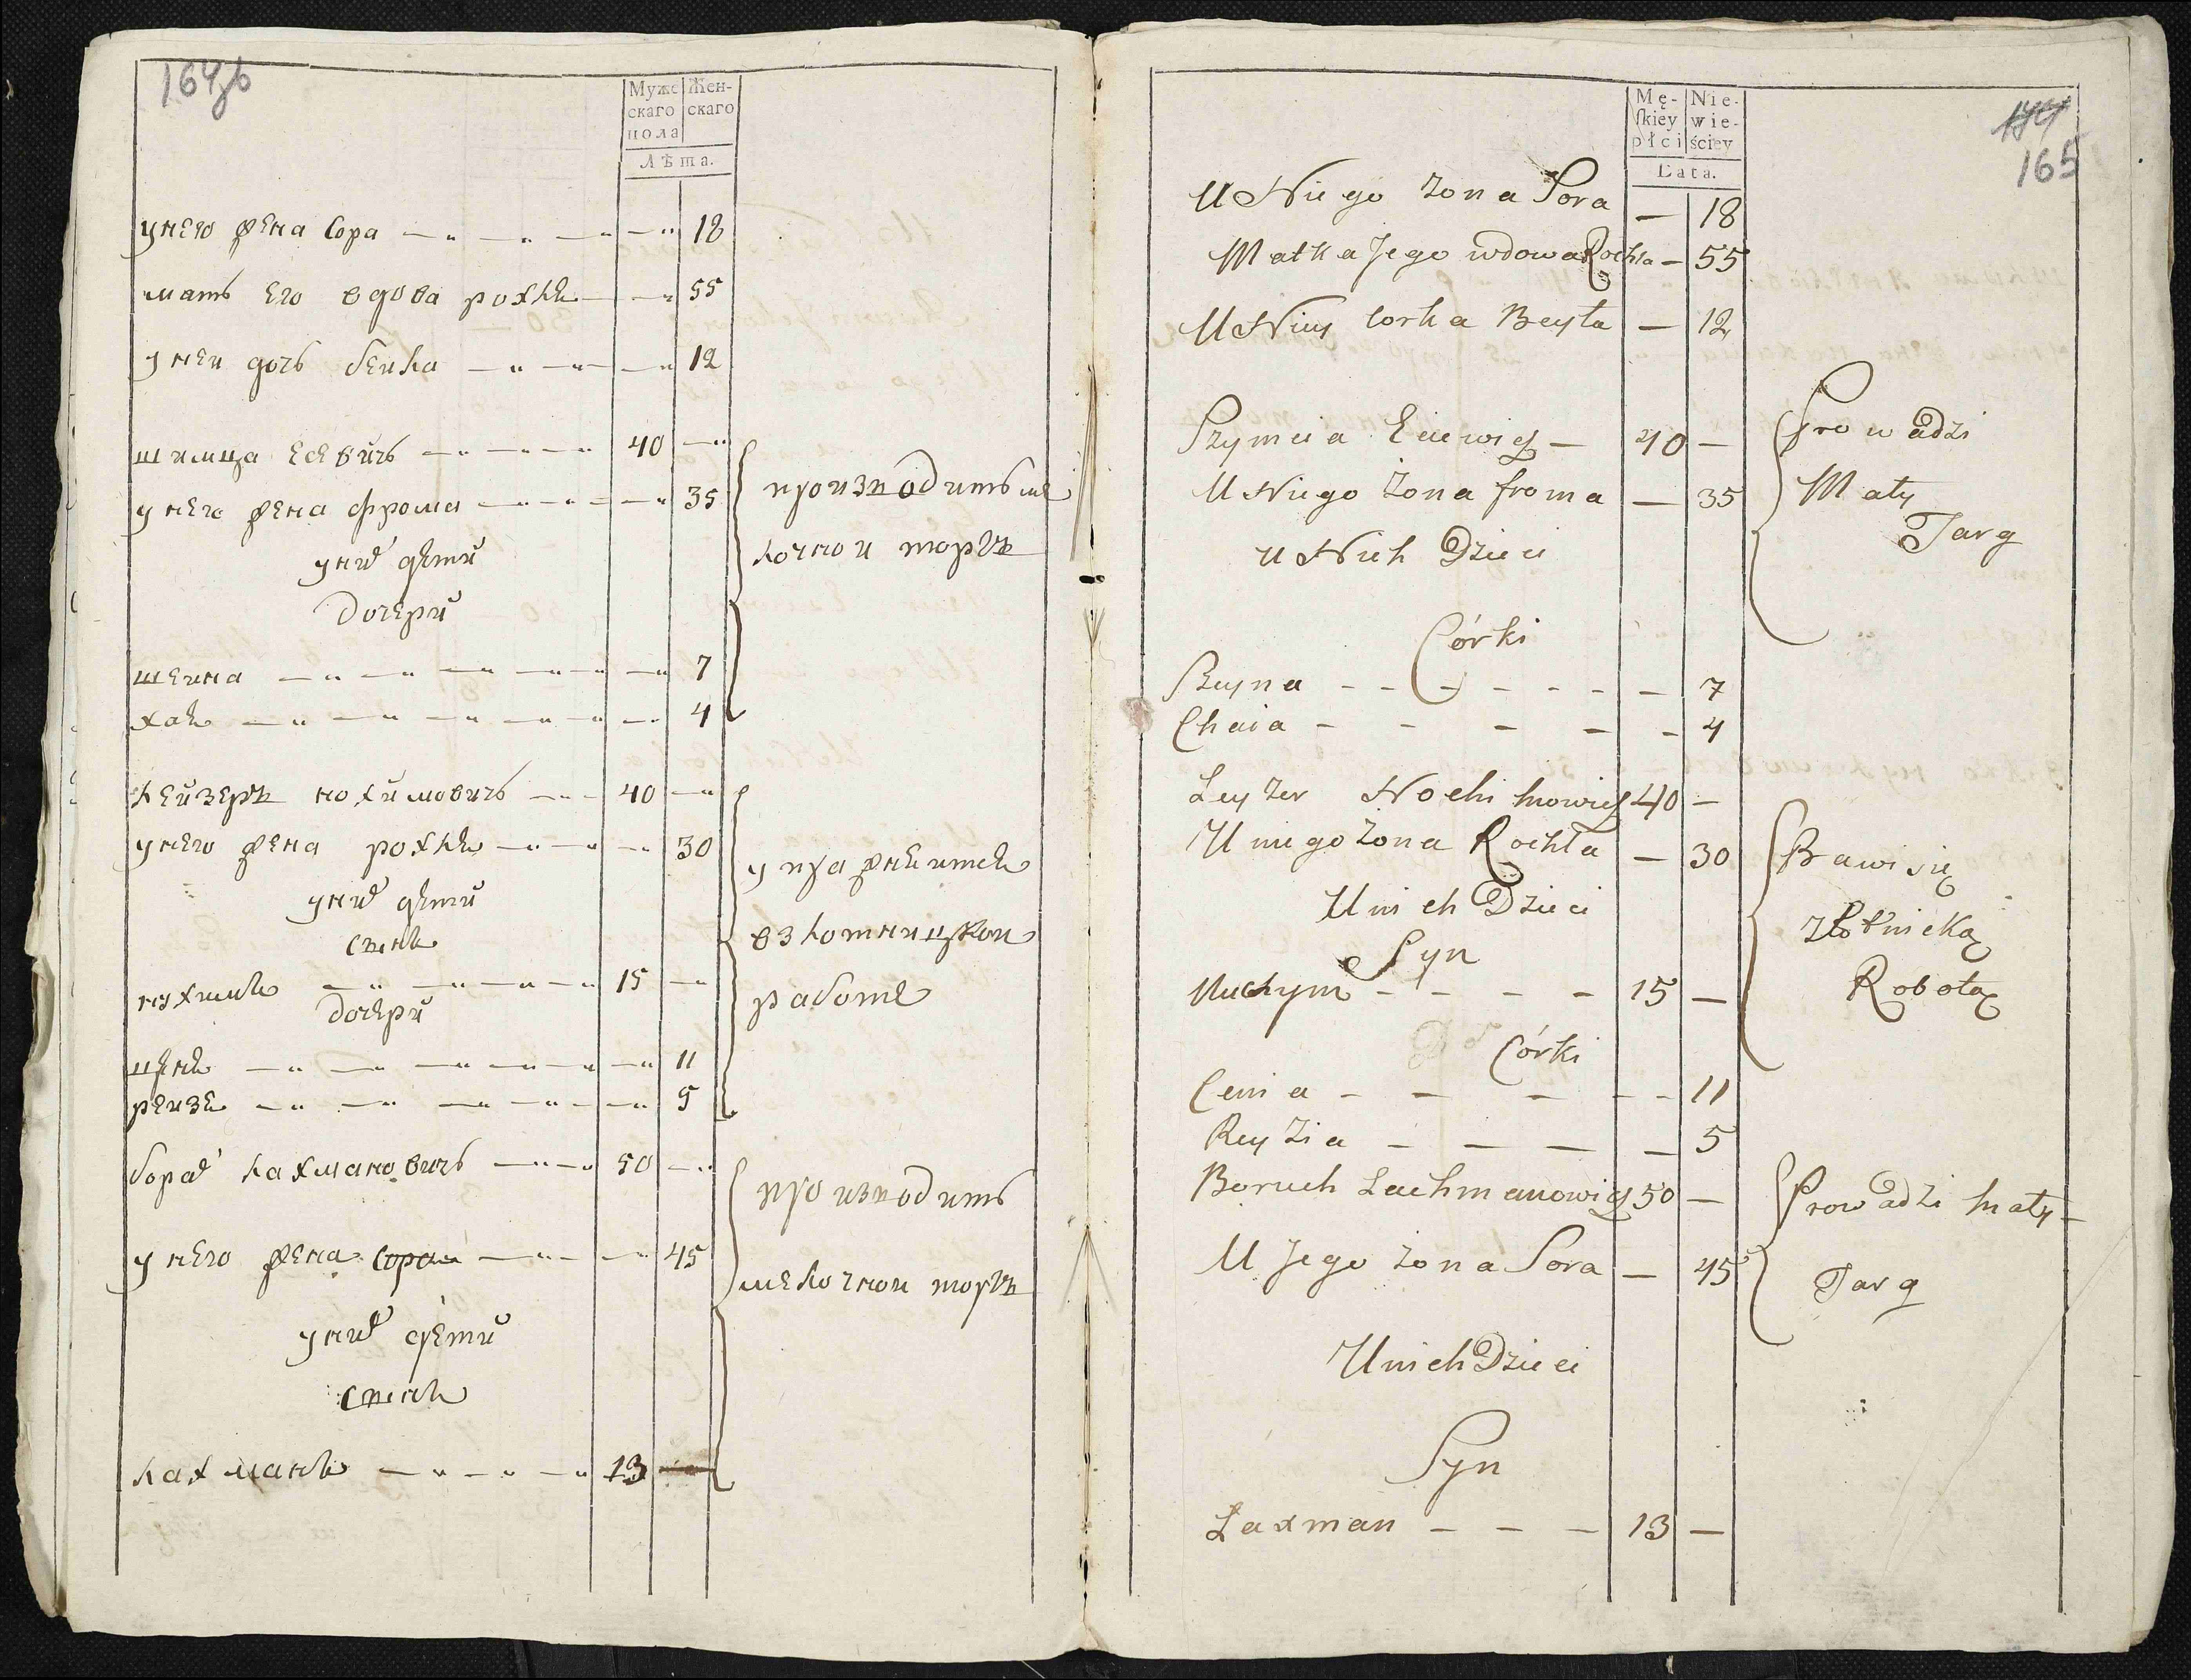 164об
Муже
скаго
пола
Жен-
скаго
Лѣта.
у него жена Сора 18
мать его вдова рохля 55
у неи дочь беила 12
шимца еевичь 40
у него жена фрома 35
у них дети
дочери
шеина 7
хая 4
производить ме
лочнои торгъ
леизеръ нохимовичь 40
у него жена рохля 30
у них дети
сынъ
нухимъ 15
дочери
ценя 11
реизя 5
упражняитея
в золотницкои
работе
борах лахмановичь 50
у него жена сора 45
у них дети
сынъ
лахманъ 13
производить
мелочнои торгъ
Mę-
skiey
płci
Nie-
wie-
ściey
Lata.
174
165
U Niego żona Sora — 18
Matka Jego wdowa Rochla — 55
U Niey Corka Beyla — 12
Szymcia Eiewicz — 40 —
U Niego Żona froma — 35
U Nich Dzieci
Córki
Szeyna 7
Chaia 4
Prowadzi
Mały
Targ
Leyzer Nochimowicz 40 —
U niego żona Rochla — 30
U nich Dzieci
Syn
Nuchym 15 —
Córki
Cenia 11
Reyzia 5
Bawi się
złotnicką
Robotą
Boruch Lachmanowicz 50 —
U Jego żona Sora — 45
U nich Dzieci
Syn
Laxman 13 —
Prowadzi mały
Targ